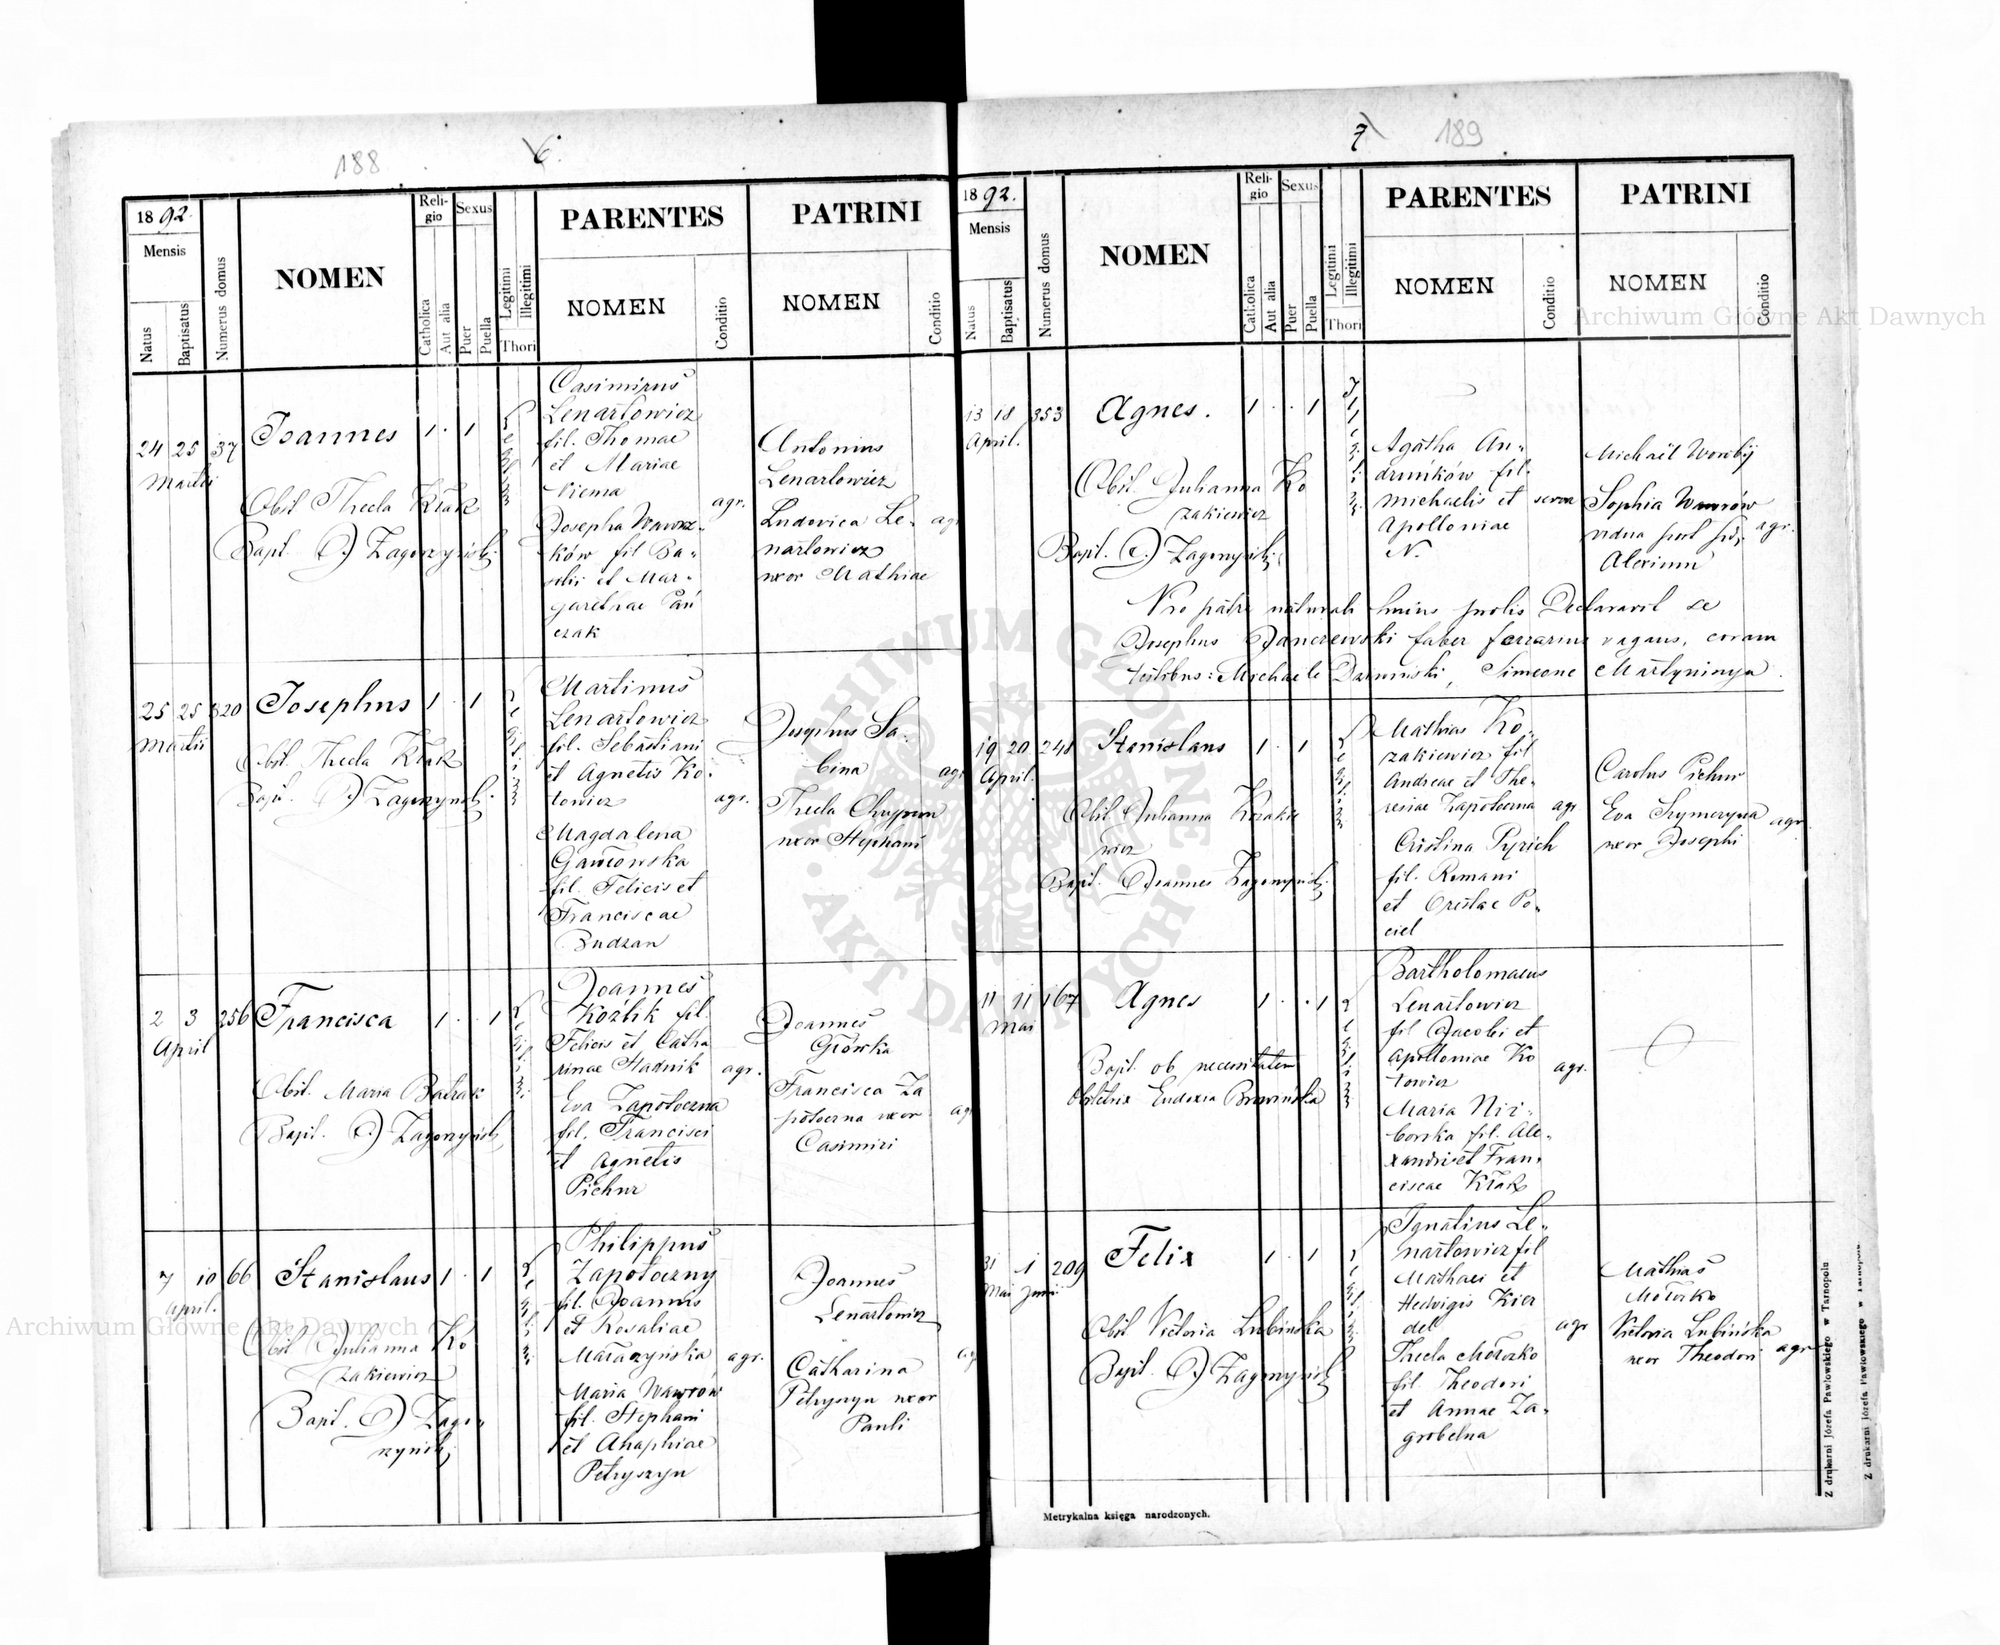 188
6.
1892.
Mensis
Natus
Baptisatus
Numerus domus
NOMEN
Religio
Catholica
Aut alia
Sexus
Puer
Puella
Legitimi
Illegitimi
Thori
PARENTES
NOMEN
Conditio
PATRINI
NOMEN
Conditio
24 25 37
Martii
Joannes 1 . 1
Obst Thecla Krak
Bapt. J Zagorzyński
Casimirus
Lenartowicz
fil. Thomae
et Mariae
Niema
Josepha Wawrz-
ków fil Ba-
silii et Mar-
garethae Pań
czak
agr.
Antonius
Lenartowicz
Ludovica Le-
nartowicz
uxor Mathiae
agr
25 25 320
Martii
Josephus 1 . 1
Obst. Thecla Krak
Bapt. J Zagorzyński
Martinus
Lenartowicz
fil. Sebastiani
et Agnetis Ko-
towicz
Magdalena
Gawrowska
fil. Felicis et
Franciscae
Budzan
agr.
Josephus Sa-
bina
Thecla
uxor Stephani
agr
2 3 256
April
Francisca 1 . . 1
Obst. Maria Batrak
Bapt. J Zagorzyński
Joannes
Koźlik fil.
Felicis et Catha
rinae Stadnik
Eva Zapotoczna
fil. Francisci
et Agnetis
Pichur
agr.
Joannes
Główka
Francisca Za
potoczna uxor
Casimiri
agr
7 10 66
April.
Stanislaus 1 . 1
Obst Julianna Ko
zakiewicz
Bapt. J Zago-
rzyński
Philippus
Zapotoczny
fil. Joannis
et Rosaliae
Mataczyńska
Maria Wawrów
fil. Stephani
et Ahaphiae
Petryszyn
agr.
Joannes
Lenartowicz
Catharina
Petryszyn uxor
Pauli
agr
7
189
1892.
Mensis
Natus
Baptisatus
Numerus domus
NOMEN
Religio
Catholica
Aut alia
Sexus
Puer
Puella
Legitimi
Illegitimi
Thori
PARENTES
NOMEN
Conditio
PATRINI
NOMEN
Conditio
13 18 353
April.
Agnes. 1 . . 1
Obst. Julianna Ko
zakiewicz
Bapt. J Zagorzyński
Agatha An-
druńków fil.
Michaelis et
Apolloniae
N.
serva
Michaël
Sophia Wawrów
vidua post
Alexium
agr.
Pro patre naturali huius prolis Declaravit se
Josephus Janczewski faber ferrarius vagans, coram
testibus: Michaele Dziwiński, Simeone Martyniuga.
19 20 248
April.
Stanislaus 1 . 1
Obst Julianna Kozakie
wicz
Bapt. Joannes Zagorzyński
Mathias Ko-
zakiewicz fil
Andreae et The-
resiae Zapotoczna
Cristina Pyrich
fil. Romani
et Orestae Po-
ciel
agr
Carolus Pichur
Eva Szymczyna
uxor Josephi
agr
11 11 167
Mai
Agnes 1 . . 1
Bapt. ob necessitatem
Obstetrix Eudoxia
Bartholomaeus
Lenartowicz
fil Jacobi et
Apolloniae Ko
towicz
Maria Niz-
borska fil. Ale-
xandri et Fran-
ciscae Krak
agr.
31 1 209
Mai Junii
Felix 1 . 1
Obst Victoria Lubińska
Bapt. J Zagorzyński
Ignatius Le-
nartowicz fil
Mathaei et
Hedvigis Kier
del
Thecla Mórozko
fil. Theodori
et Annae Za-
grobelna
agr
Mathias
Victoria Lubińska
uxor Theodori
agr
Metrykalna księga narodzonych.
Z drukarni Józefa Pawłowskiego w Tarnopolu
Z drukarni Józefa Pawłowskiego w Tarnopolu
Archiwum Główne Akt Dawnych
Archiwum Główne Akt Dawnych
ARCHIWUM GŁÓWNE
· AKT DAWNYCH ·